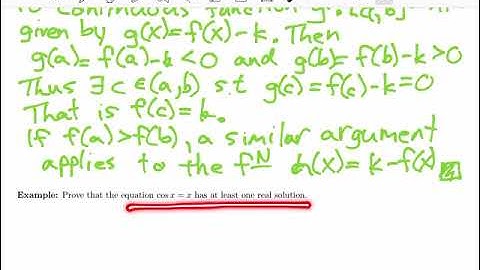 to continuous function g:[a,b]
given by g(x)=f(x)-k. Then
g(a)=f(a)-k<0 and g(b)=f(b)-k>0
Thus ∃ c∈(a,b) s.t g(c)=f(c)-k=0
That is f(c)=k.
If f(a)>f(b), a similar argument
applies to the fN h(x)=k-f(x)
Example: Prove that the equation cos x = x has at least one real solution.